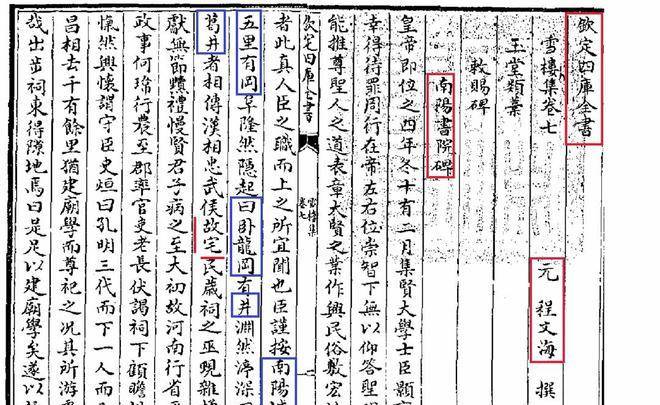 欽定四庫全書
雪樓集卷七 元 程文海 撰
玉堂類藁
敕賜碑
南陽書院碑
皇帝即位之四年冬十有二月集賢大學士臣顥
幸得待罪周行在帝左右位崇智下無以仰答聖
能推尊聖人之道表章大賢之業作興民俗敷宏
欽定四庫全書
雪樓集
卷七
者此真人臣之職而上之所宜聞也臣謹按南陽
五里有岡阜隆然隱起曰卧龍岡有井淵然渟深
葛井者相傳漢相忠武侯故宅民歳祠之巫覡雜
獻無節黷禮慢賢君子病之至大初故河南行省
政事何瑋行農至郡率官吏老長伏謁祠下顧瞻
愾然興懷謂守臣史烜曰孔明三代而下一人而
昌相去千有餘里猶建廟學而尊祀之况其所游
哉出步祠東得隙地焉曰是足以建廟學矣遂以